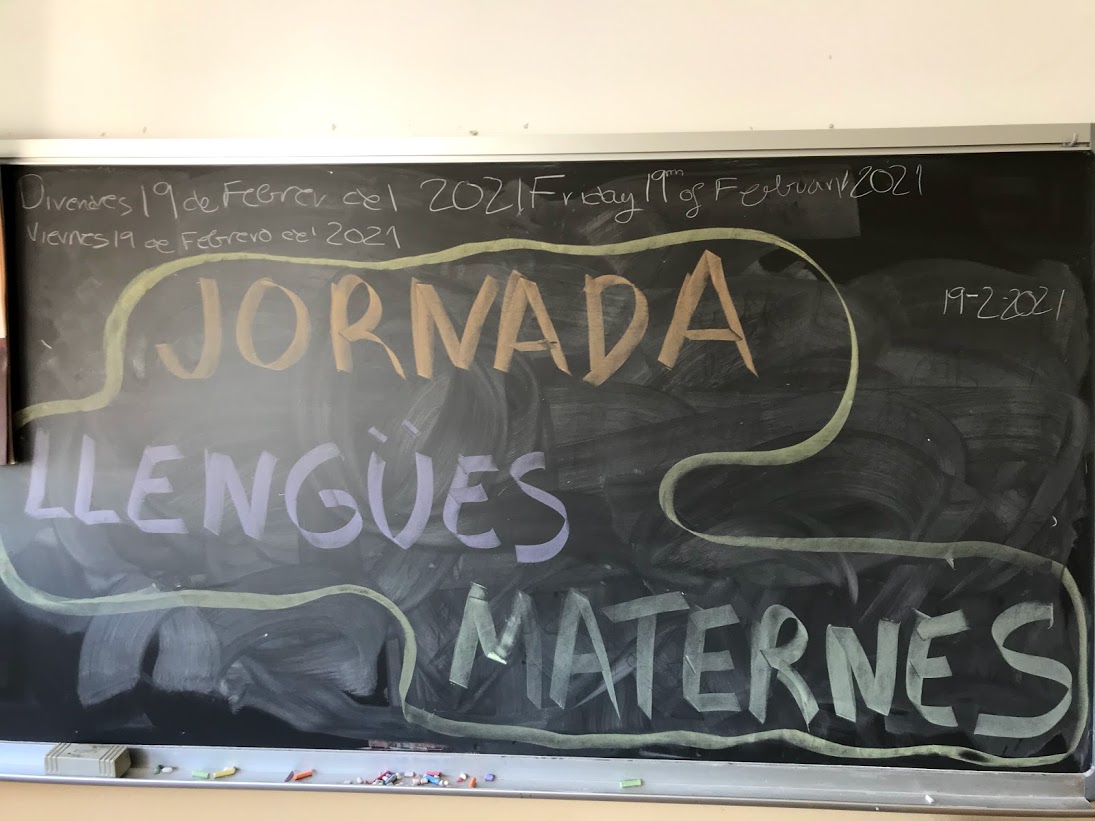 Divendres 19 de Febrer del 2021 Friday 19th of February 2021
Viernes 19 de Febrero del 2021
19-2-2021
JORNADA
LLENGÜES
MATERNES